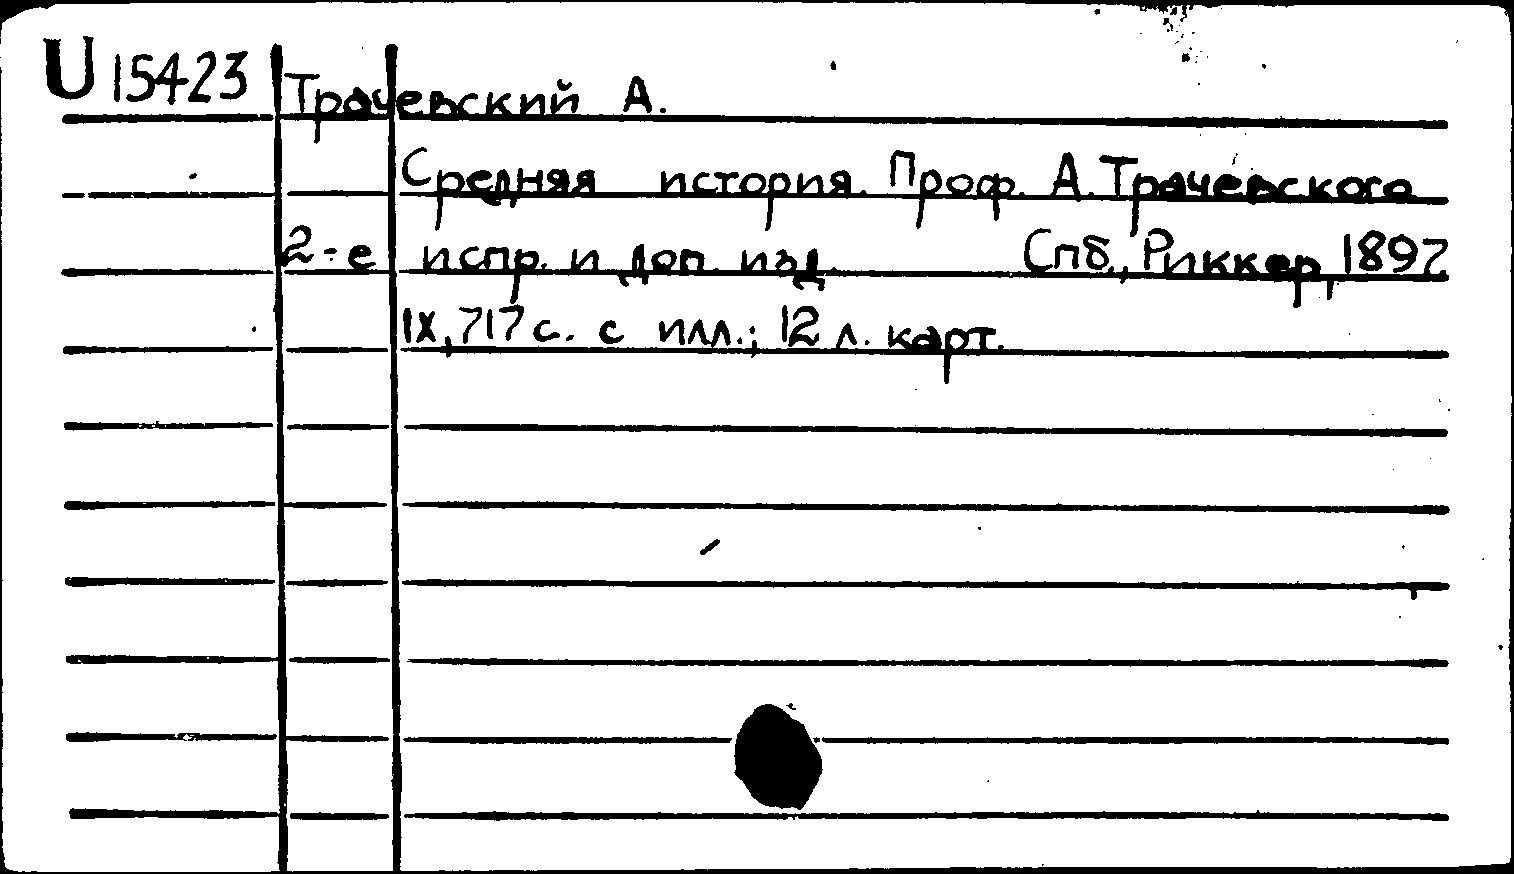 U 15423 Трачевский А.
Средняя история. Проф. А. Трачевского
2-е испр. и доп. изд. Спб., Риккер, 1897
IX, 717 с. с илл.; 12 л. карт.